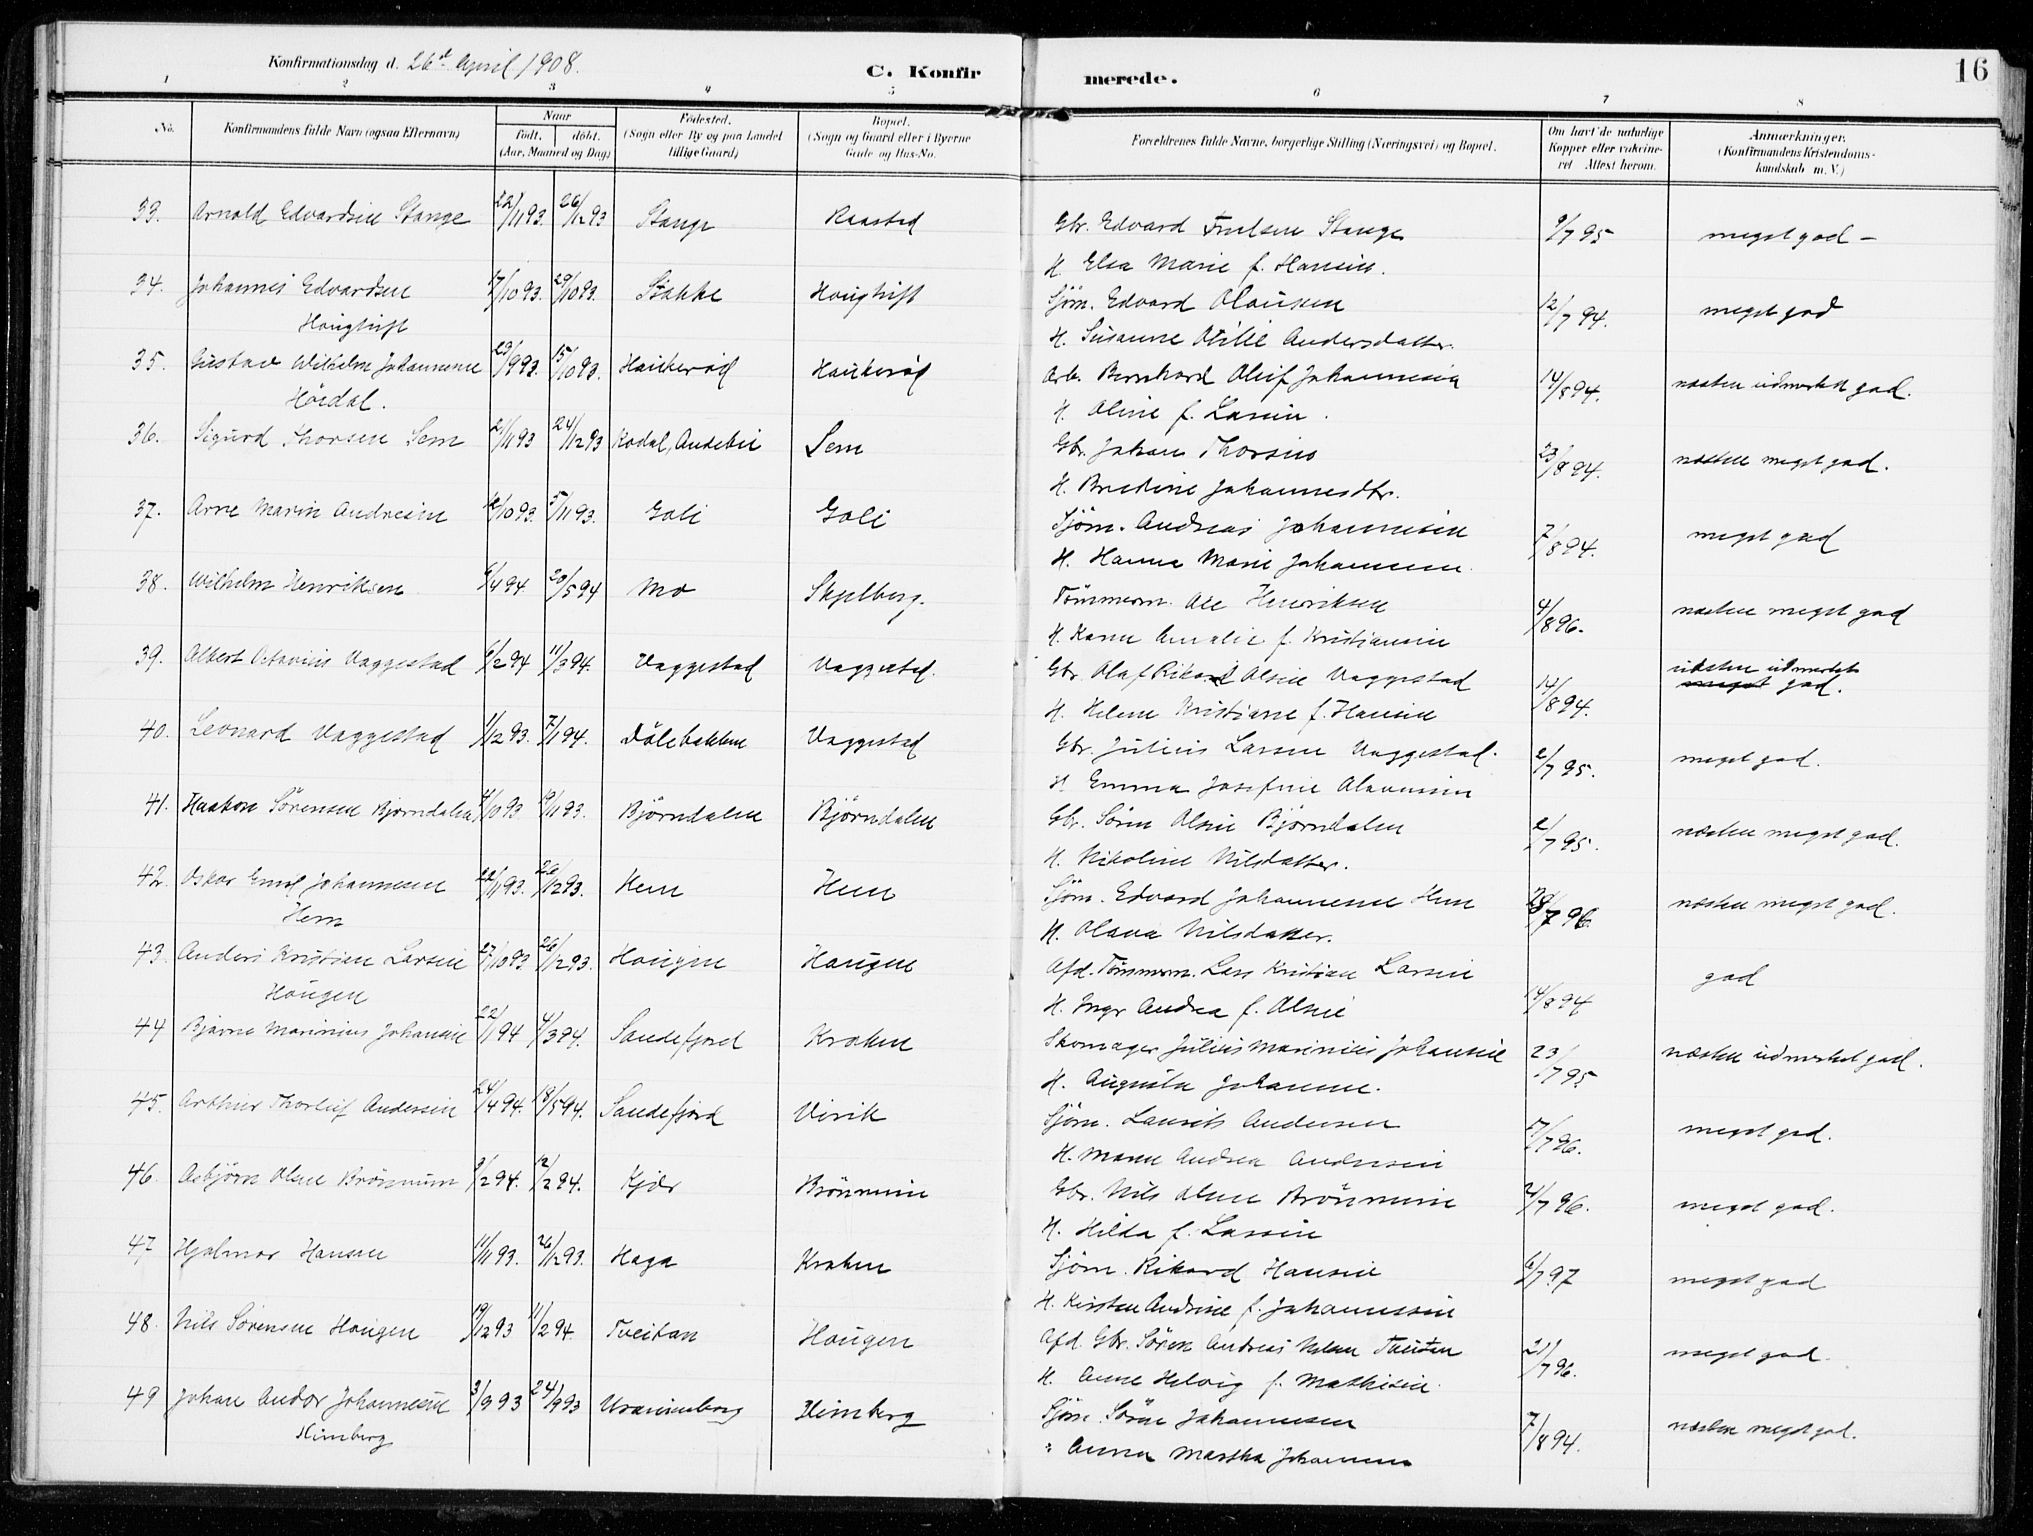 Konfirmationsdag d. 26de April 1908.
C. Konfirmerede.
16
1 2 3 4 5 6 7 8
No.
Konfirmandens fulde Navn (ogsaa Efternavn)
Naar
født. døbt.
(Aar, Maaned og Dag)
Fødested.
(Sogn eller By og paa Landet
tillige Gaard)
Bopæl.
(Sogn og Gaard eller i Byerne
Gade og Hus-No.
Forældrenes fulde Navne, borgerlige Stilling (Næringsvei) og Bopæl.
Om havt de naturlige
Kopper eller vakcine-
ret Attest herom.
Anmærkninger.
(Konfirmandens Kristendoms-
kundskab m. V.)
33. Arnold Edvardsen Stange 22/11 93. 26/12 93 Stange Raastad Gbr. Edvard Stange 9/7 95 meget god -
H. Elea Marie f. Hansen.
34. Johannes Edvardsen 17/10 93. 29/10 93. Stokke Hougtrift Sjøm. Edvard Olausen 12/7 94. meget god
Hougtrift H. Susanne Otilie Andersdatter.
35. Gustav Wilhelm Johannesen 29/9 93. 15/10 93. Haukerød Haukerød Arb. Bernhard Oluf Johannesen 14/8 94. næsten udmerket god.
Høidal. H. Oline f. Larsen.
36. Sigurd Thorsen Sem 21/11 93 24/12 93 Kodal, Andebu Sem Gbr. Johan Thorsen 23/8 94. næsten meget god.
H. Bredine Johannesdtr.
37. Arne Marin Andresen 12/10 93. 5/11 93. Goli Goli Sjøm. Andreas Johannesen 7/8 94. meget god
H. Hanna Marie Johannesen.
38. Wilhelm Henriksen 6/4 94. 20/5 94 Mo Skjelberg. Tømmerm. Ole Henriksen 4/8 96. næsten meget god
H. Karen Amalie f. Kristiansen
39. Albert Octavius Vaggestad 6/2 94 11/3 94. Vaggestad Vaggestad. Gbr. Olaf Rikard Olsen Vaggestad 14/8 94. næsten udmerket
meget god.
H. Helene Kristiane f. Hansen
40. Leonard Vaggestad 1/12 93. 7/1 94. Dölebakken Vaggestad Gbr. Julius Larsen Vaggestad. 2/7 95. meget god.
H. Emma Josefine Olavesen
41. Haakon Sørensen Bjørndalen 4/10 93 19/11 93. Bjørndalen Bjørndalen Gbr. Søren Olsen Bjørndalen 2/7 95. næsten meget god.
H. Nikoline Nilsdatter.
42. Oskar Emil Johannesen 22/11 93. 26/12 93. Hem Hem Sjøm. Edvard Johannesen Hem 28/7 96. næsten meget god.
Hem H. Olava Nilsdatter.
43. Anders Kristian Larsen 27/10 93 26/12 93. Hougen Haugen Afd. Tømmerm. Lars Kristian Larsen 14/8 94 god
Hougen H. Inger Andrea f. Olsen
44 Bjarne Marinius Johansen 22/1 94 4/3 94. Sandefjord Kraken Skomager Julius Marinius Johansen 23/7 95 næsten udmerket god.
H. Augusta Johanne.
45. Arthur Thorleif Andersen 24/4 94. 18/5 94. Sandefjord Virik Sjøm. Laurits Andersen 17/7 96. meget god.
H. Maren Andrea Andersen
46. Asbjørn Olsen Brønnum 9/2 94. 12/2 94. Kjær Brönnum Gbr. Nils Olsen Brönnum 2/7 96. meget god.
H. Hilda f. Larsen
47 Hjalmar Hansen 11/11 93. 26/12 93. Haga Kraken Sjøm. Rikard Hansen 6/7 97 meget god
H. Kirsten Andrine f. Johannessen
48. Nils Sørensen Hougen 19/12 93 11/2 94. Tveitan Hougen Afd. Gbr. Søren Andreas Nilsen Tveitan 21/7 96. meget god.
H. Anne Helvig f. Mathisen.
49 Johan Andor Johannesen 3/9 93 24/9 93 Uranienborg Himberg Sjøm. Sörn Johannesen 7/8 94. næsten meget god.
Himberg " Anna Martha Johannesen